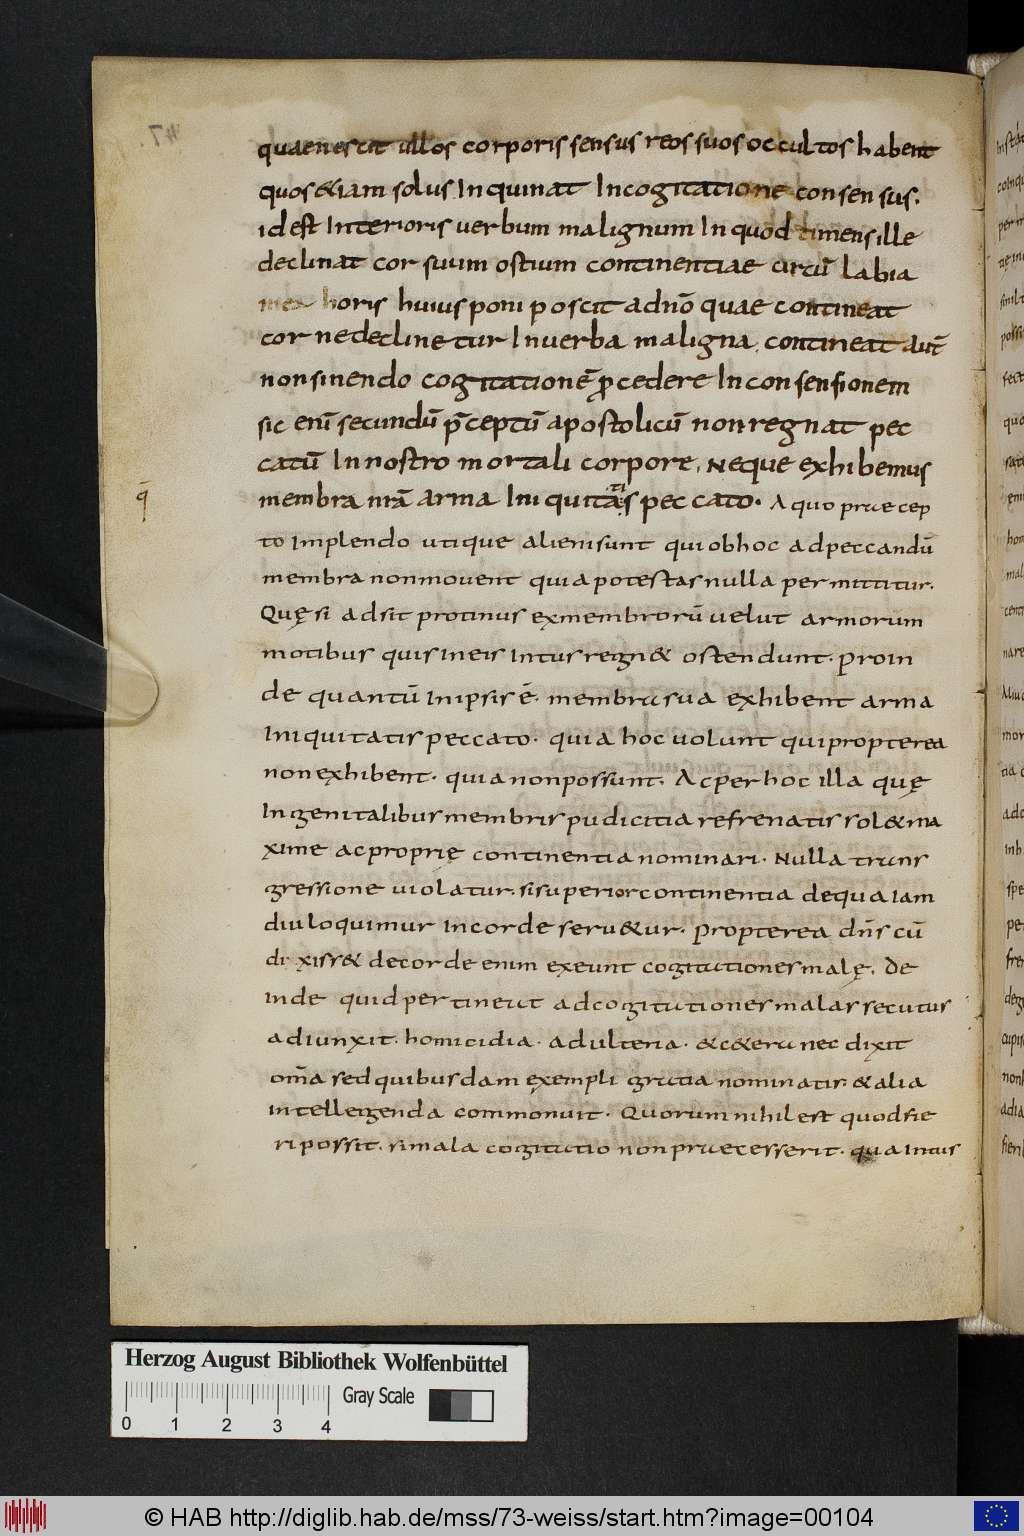 quae nescit ullos corporis sensus reos suos occultos habent
quos &iam solus Inquinat Incogitatione consensus.
id est Interioris uerbum malignum In quod timens ille
declinat cor suum ostium continentiae circū labia
horis huius poni poscit adnō quae contineat
cor nedeclinetur Inuerba maligna. contineat aut̄
nonsinendo cogitationē p̄cedere Inconsensionem
sic enī secundū p̄ceptū apostolicū nonregnat pec
catū In nostro mortali corpore, Neque exhibemus
membra nr̄a arma Iniquitatis peccato. A quo praecep
q̄
to Implendo utique alieni sunt qui ob hoc ad peccandū
membra non mouent quia potestas nulla permittitur.
Quę si adsit protinus exmembrorū uelut armorum
motibus quis Ineis Intus regn& ostendunt. Proin
de quantū Inipsis ē. membra sua exhibent arma
Iniquitatis peccato. quia hoc uolunt qui propterea
non exhibent. quia nonpossunt. Ac per hoc illa quę
In genitalibus membris pudicitia refrenatis sol& ma
xime ac proprię continentia nominari. Nulla trans
gressione uiolatur. si superior continentia dequa Iam
diu loquimur Incorde seru&ur. Propterea dn̄s cū
dixiss& decorde enim exeunt cogitationes malę. De
inde quid pertineat adcogitationes malas secutus
adiunxit. homicidia. adulteria. &c&era nec dixit
om̄a sed quibusdam exempli gratia nominatis. & alia
intellegenda commonuit. Quorum nihil est quod fie
ri possit. si mala cogitatio non praecesserit. qua Intus
Herzog August Bibliothek Wolfenbüttel
Gray Scale
0 1 2 3 4
© HAB http://diglib.hab.de/mss/73-weiss/start.htm?image=00104